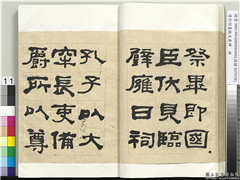 祭畢即國
臣伏見臨
璧雍日祠
孔子以大
宰長吏備
爵所以尊
11